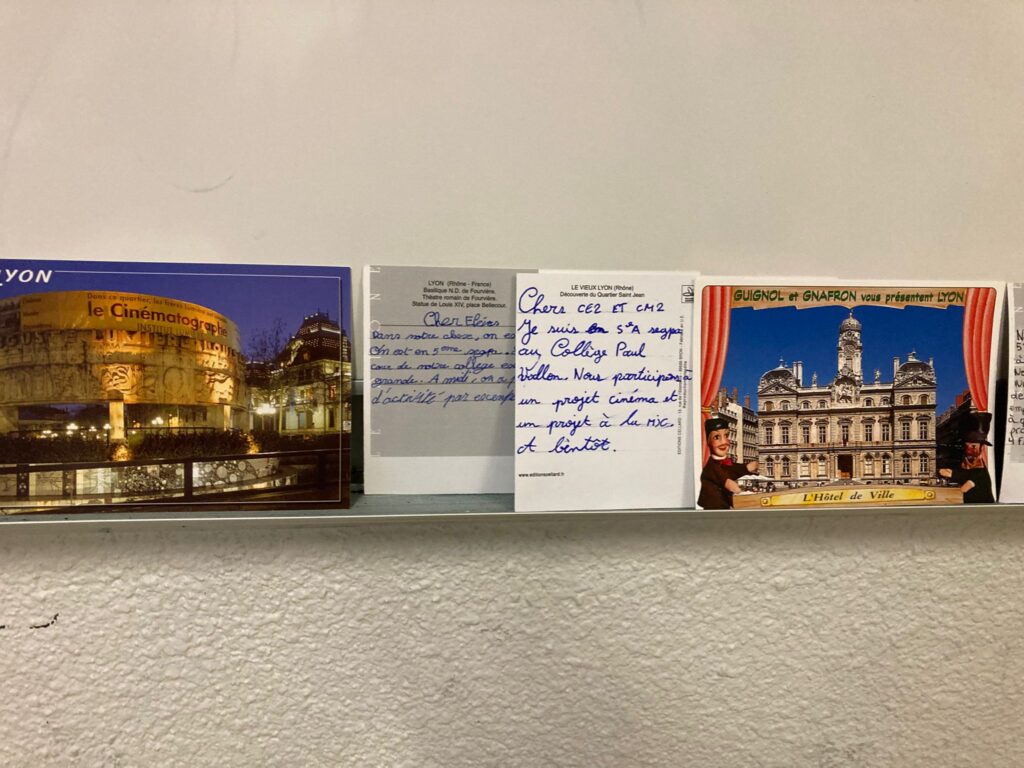 LYON
Dans ce quartier, les frères
le Cinématographe
INSTITUT LUMIÈRE
LYON (Rhône - France)
Basilique N.D. de Fourvière.
Théâtre romain de Fourvière.
Statue de Louis XIV, place Bellecour.
Cher Elèves
Dans notre classe, on es
On est en 5ème segpa
cour de notre collège es
grande. A midi, on a p
d'activité par exemple
LE VIEUX LYON (Rhône)
Découverte du Quartier Saint Jean
Chers CE2 ET CM2
Je suis en 5°A segpa
au Collège Paul
Wallon. Nous participons à
un projet cinéma et
un projet à la MJC.
A bientôt.
www.editionscellard.fr
EDITIONS CELLARD
GUIGNOL et GNAFRON vous présentent LYON
L'Hôtel de Ville